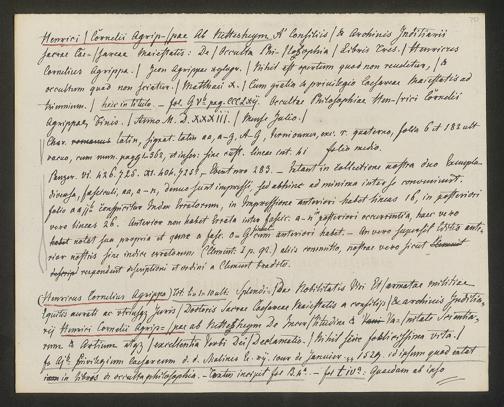 Henrici / Cornelii Agrip-/pae Ab Nettesheym A' Consiliis / & Archivis Inditiarii
sacrae Cae-/sareae Maiestatis: De / Occulta Phi-/losophia / Libris Tres. / Henricus
Cornelius Agrippa. / Icon Agrippae xylogr. / Nihil est opertum quod non reveletur, / &
occultum quod non sciatur. / Matthaei X. / Cum gratia & privilegio Caesareae Maiestatis ad
triennium. / heic in titulo. - fol. G Vb pag. CCCLXij. Occultae Philosophiae Hen-/rici Cornelii
Agrippae, Finis. / Anno M.D.XXXIII. / Mense Julio. /
Char. latin, signat. latin aa, a-z, A-G, terniones, exc. r. quaterno, folia 6 et 182 ult
vacuo, cum num. pagg 1-362, et infer: sine custt. lineas cut. 41 folio medio.
Panzer. VI. 426. 725. XI. 404. 725b, 283. - Extant in collectione nostra duo exempla
diversa, fasciculi, aa, a-n, denuo sunt impressi, sed abhinc ad minima inter se conveniunt.
folio aa ijb conspicitur Index Erratorum, in impressione anteriori habet lineas 16, in posteriori
vero lineas 26. Anterior non habet Errata inter fascic. a-n posteriori occurrentia, haec vero
habet notas sua propria et quae a fasc. o-G anteriori habet. - An vero superest Editio ante-
rior nostris sine indice erratorum (Clement. I p. 90.) aliis committo, nostrae vero sicut
respondent descriptioni et ordini a Clement tradito.
(Henricus Cornelius Agrippa) Splendi-/dae Nobilitatis Viri Et / armatae militiae
equitis aurati ac utriusque juris / Doctoris Sacrae Caesareae Maiestatis a consilijs / & archivis Inditia-
rij Henrici Cornelii Agrip-/pae ab Nettesheym De Incer-/titudine & Va-/nitate Scientia-
rum & Artium atque / excellentia Verbi Dei / declamatio. / Nihil scire foelicissima vita. /
fo Ajb. Privilegium Caesareum d. d. Malines le xij. jour de janvier 1529. id ipsum quod extat
in libros de occulta philosophia. - Textus incipit fol B. 4a. - fol t ivb: Quaedam ab ipso